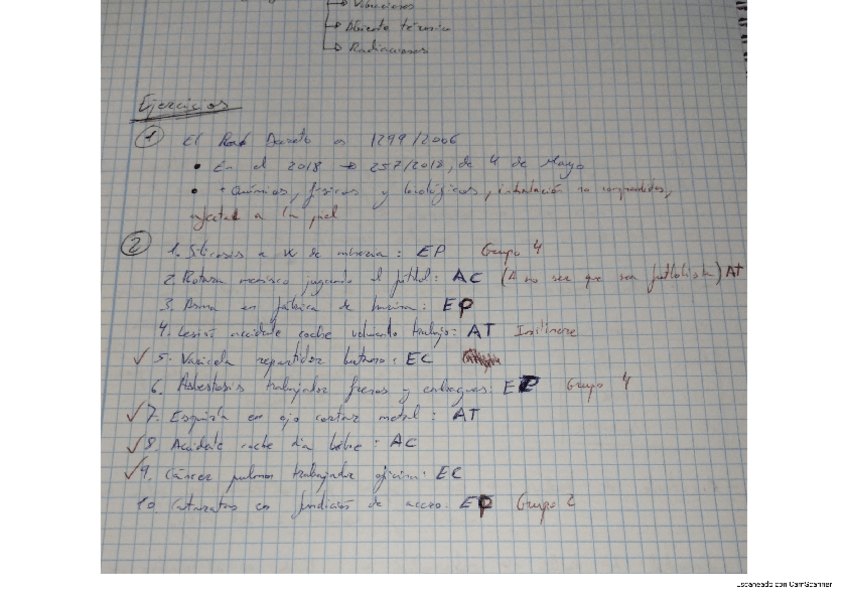 → Vibraciones
→ Ambiente térmico
→ Radiaciones
Ejercicios
① El Real Decreto es 1299/2006
• En el 2018 → 257/2018, de 4 de Mayo
• + Químicos, físicos y biológicos, inhalación no comprendidos,
a la piel
② 1. Silicosis a de mineria: EP Grupo 4
2. Rotura menisco jugando el fútbol: AC (A no ser que sea futbolista) AT
3. Asma en fábrica de harina: EP
4. Lesión accidente coche volviendo trabajo: AT Initinere
✓ 5. Varicela repartidor butano: EC
6. Asbestosis trabajador frenos y embragues: EP Grupo 4
✓ 7. Esquirla en ojo cortar metal: AT
✓ 8. Accidente coche día libre: AC
✓ 9. Cáncer pulmon trabajador oficina: EC
10. Cataratas en fundición de acero: EP Grupo 2
Escaneado con CamScanner